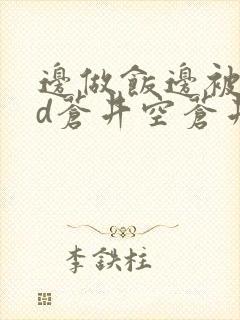 邊做飯邊被
d蒼井空蒼井
李鉄柱